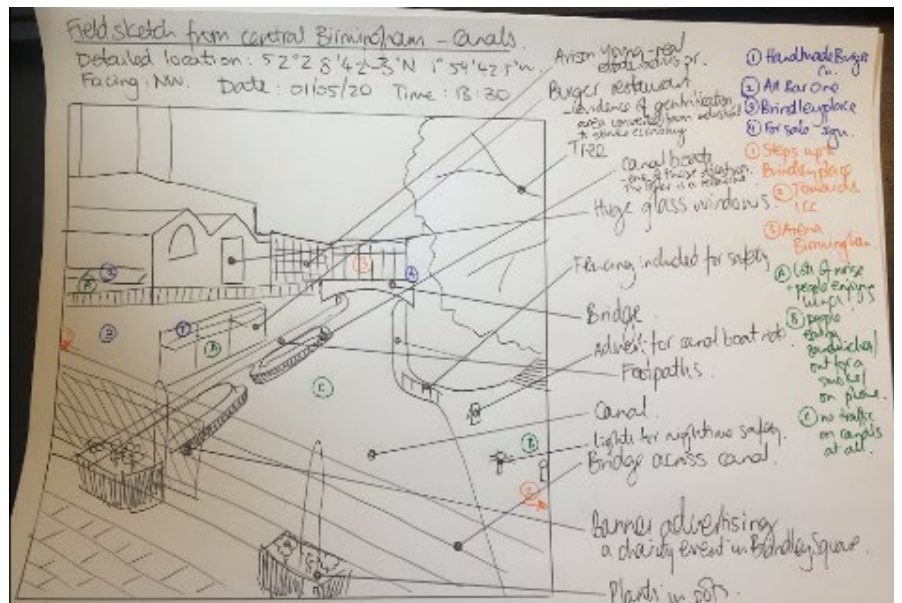 Field sketch from central Birmingham - Canals.
Detailed location: 52°28'42.3"N 1°54'42.5"W
Facing: NW. Date: 01/05/20 Time: 13:30
Avison young - real
Burger restaurant
- evidence of gentrification
area converted from industrial
economy
Tree
Canal boats
Huge glass windows
Fencing included for safety
Bridge
Advert for canal boat
Footpaths.
Canal
lights for nighttime safety.
Bridge across canal.
Banner advertising
a charity event in Brindley Square.
Plants in pots
① Handmade Burger
Co.
② All Bar One
③ Brindleyplace
④ For sale - sign.
① Steps up to
Brindleyplace
② Towards
ICC
③ Arena
Birmingham
Ⓐ lots of noise
- people enjoying
Ⓑ people
eating
sandwiches/
out for a
smoke/
on phone.
Ⓒ no traffic
on canals
at all.